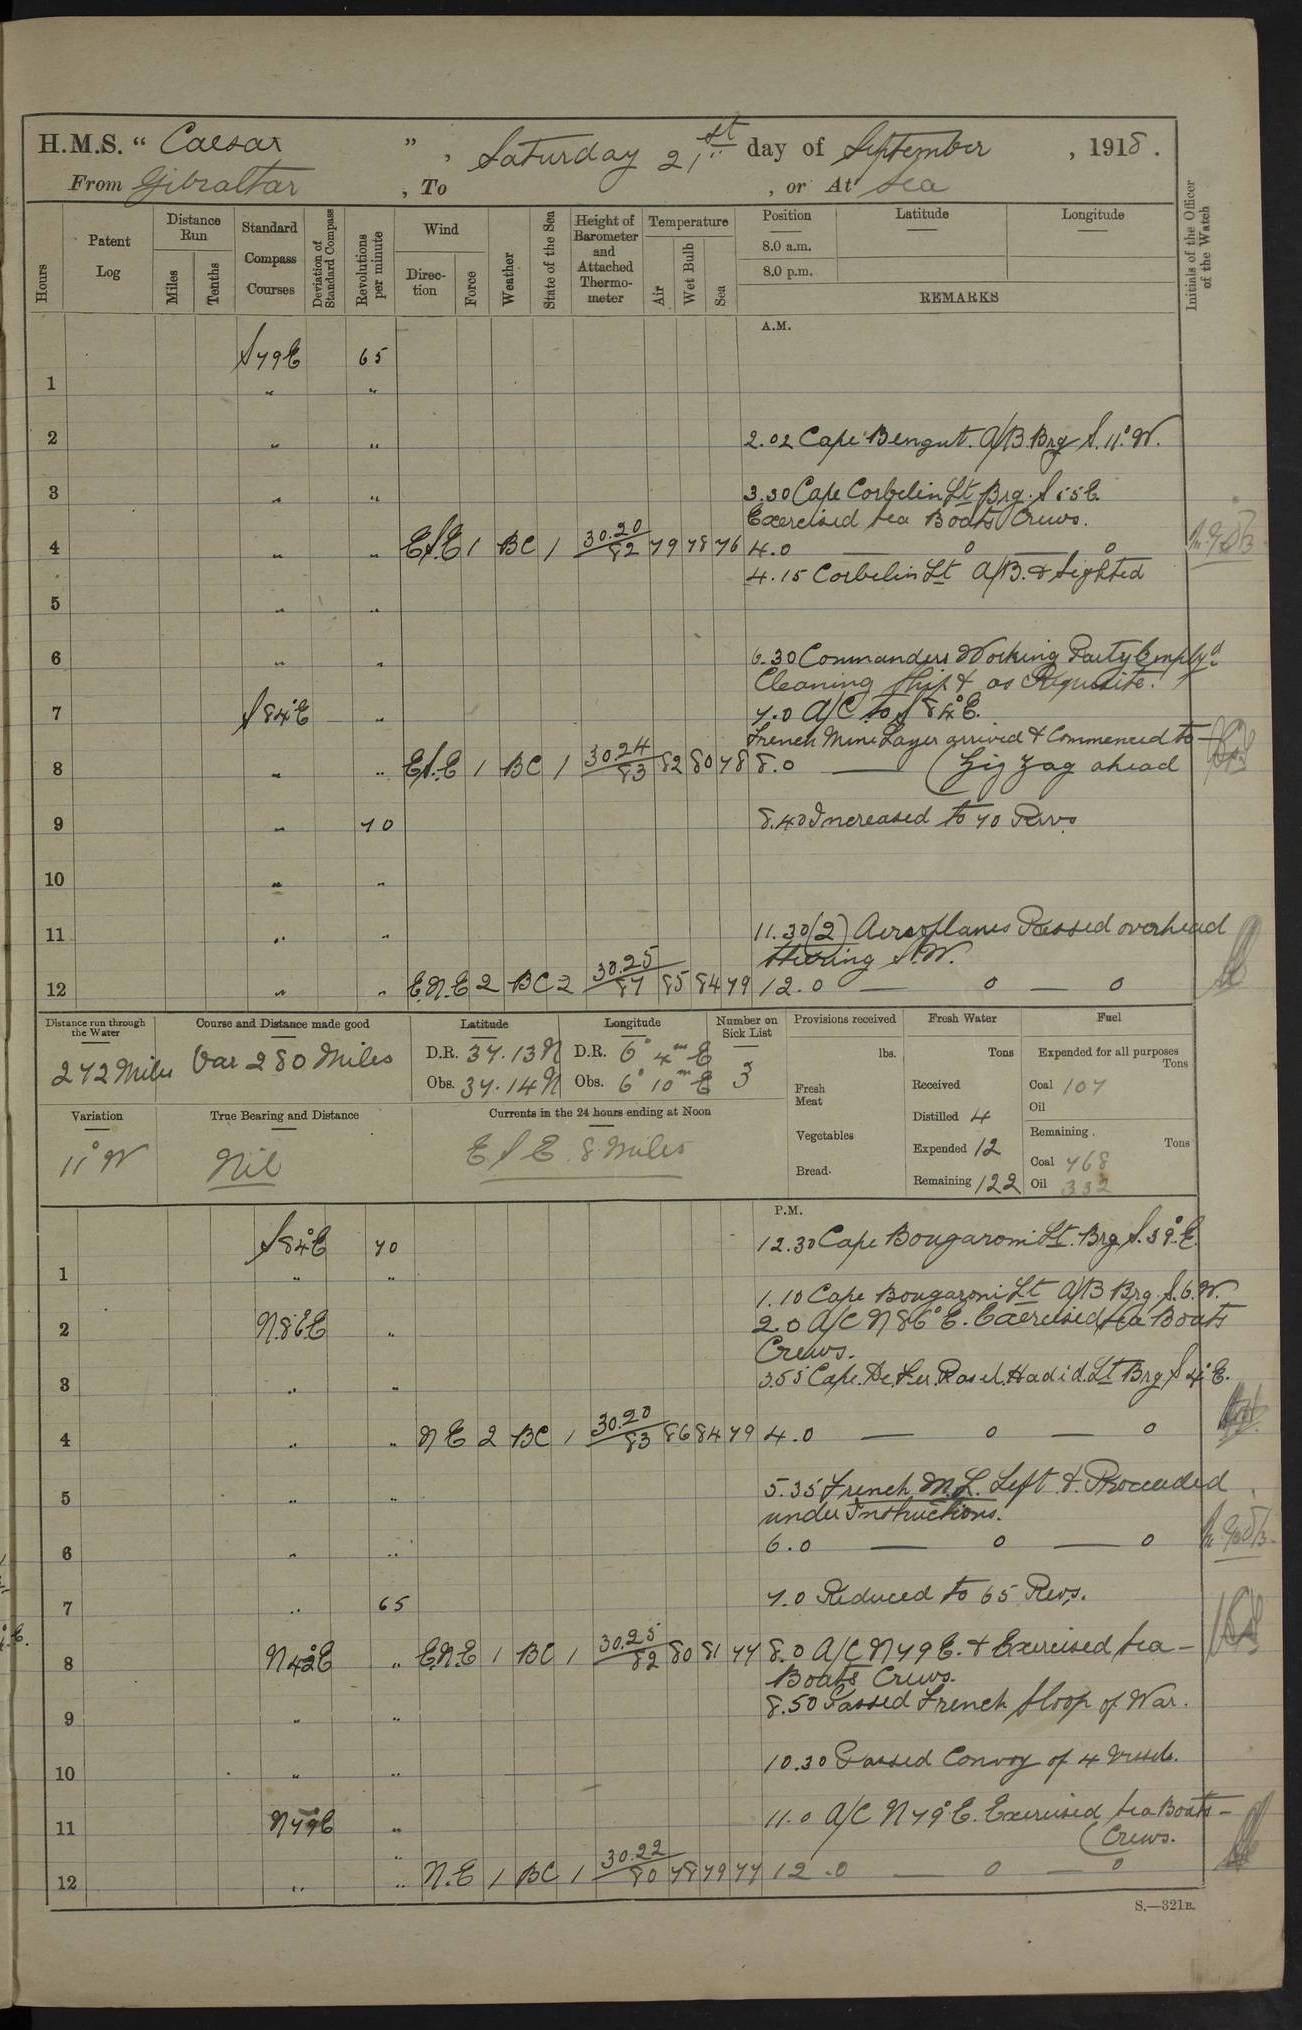 H.M.S. " Caesar " , Saturday 21st day of September , 1918 .
From Gibraltar , To , or At Sea
Hours
Patent Log
Distance Run
Miles
Tenths
Standard Compass Courses
Deviation of Standard Compass
Revolutions per minute
Wind
Direction
Force
Weather
State of the Sea
Height of Barometer and Attached Thermometer
Temperature
Air
Wet Bulb
Sea
Position
Latitude
Longitude
8.0 a.m.
8.0 p.m.
REMARKS
Initials of the Officer of the Watch
A.M.
S79E 65
1 " "
2 " " 2.02 Cape Bengut. A/B. Brg S.11°.W.
3 " " 3.30 Cape Corbelin Lt Brg. S 55 E
Exercised Sea Boats Crews.
4 " " ESE 1 BC 1 30.20/82 79 78 76 4.0 — o — o
4.15 Corbelin Lt A/B. & Sighted
5 " "
6 " " 6.30 Commanders Working Party Employd
Cleaning Ship & as Requisite.
7 S84°E " 7.0 A/C to S 84°E.
French Mine Layer arrived & Commenced to —
8 " " ESE 1 BC 1 30.24/83 82 80 78 8.0 — (Zig Zag ahead
9 " 70 8.40 Increased to 70 Revs
10 " "
11 " " 11.30 (2) Aeroplanes Passed overhead
Steering S.W.
12 " " E.N.E 2 BC 2 30.25/87 85 84 79 12.0 — o — o
Distance run through the Water
272 Miles
Course and Distance made good
Var 280 Miles
Latitude
D.R. 37.13 N
Obs. 37.14 N
Longitude
D.R. 6° 4m E
Obs. 6° 10m E
Number on Sick List
3
Provisions received
lbs.
Fresh Meat
Vegetables
Bread.
Fresh Water
Tons
Received
Distilled 4
Expended 12
Remaining 122
Fuel
Expended for all purposes
Tons
Coal 107
Oil
Remaining.
Tons
Coal 768
Oil 332
Variation
11° W
True Bearing and Distance
Nil
Currents in the 24 hours ending at Noon
ESE 8 Miles
P.M.
S84°E 70 12.30 Cape Bougaroni Lt. Brg S.59°.E.
1 " " 1.10 Cape Bougaroni Lt A/B Brg. S.6.W.
2 N86°E " 2.0 A/C N 86° E. Exercised Sea Boats
Crews.
3 " " 3.55 Cape. De. Fer. Ras el. Hadid. Lt Brg S 4° E.
4 " " N E 2 BC 1 30.20/83 86 84 79 4.0 — o — o
5 " " 5.35 French M.L. Left & Proceeded
under Instructions.
6 " " 6.0 — o — o
7 " 65 7.0 Reduced to 65 Revs.
8 N42°E " E.N.E 1 BC 1 30.25/82 80 81 77 8.0 A/C N79E. & Exercised Sea —
Boats Crews.
8.50 Passed French Sloop of War.
9 " "
10 " " 10.30 Passed Convoy of 4 Vessels.
11 N79°E " 11.0 A/C N 79° E. Exercised Sea Boats —
(Crews.
12 " " N.E 1 BC 1 30.22/80 78 79 77 12.0 — o — o
S.—321B.